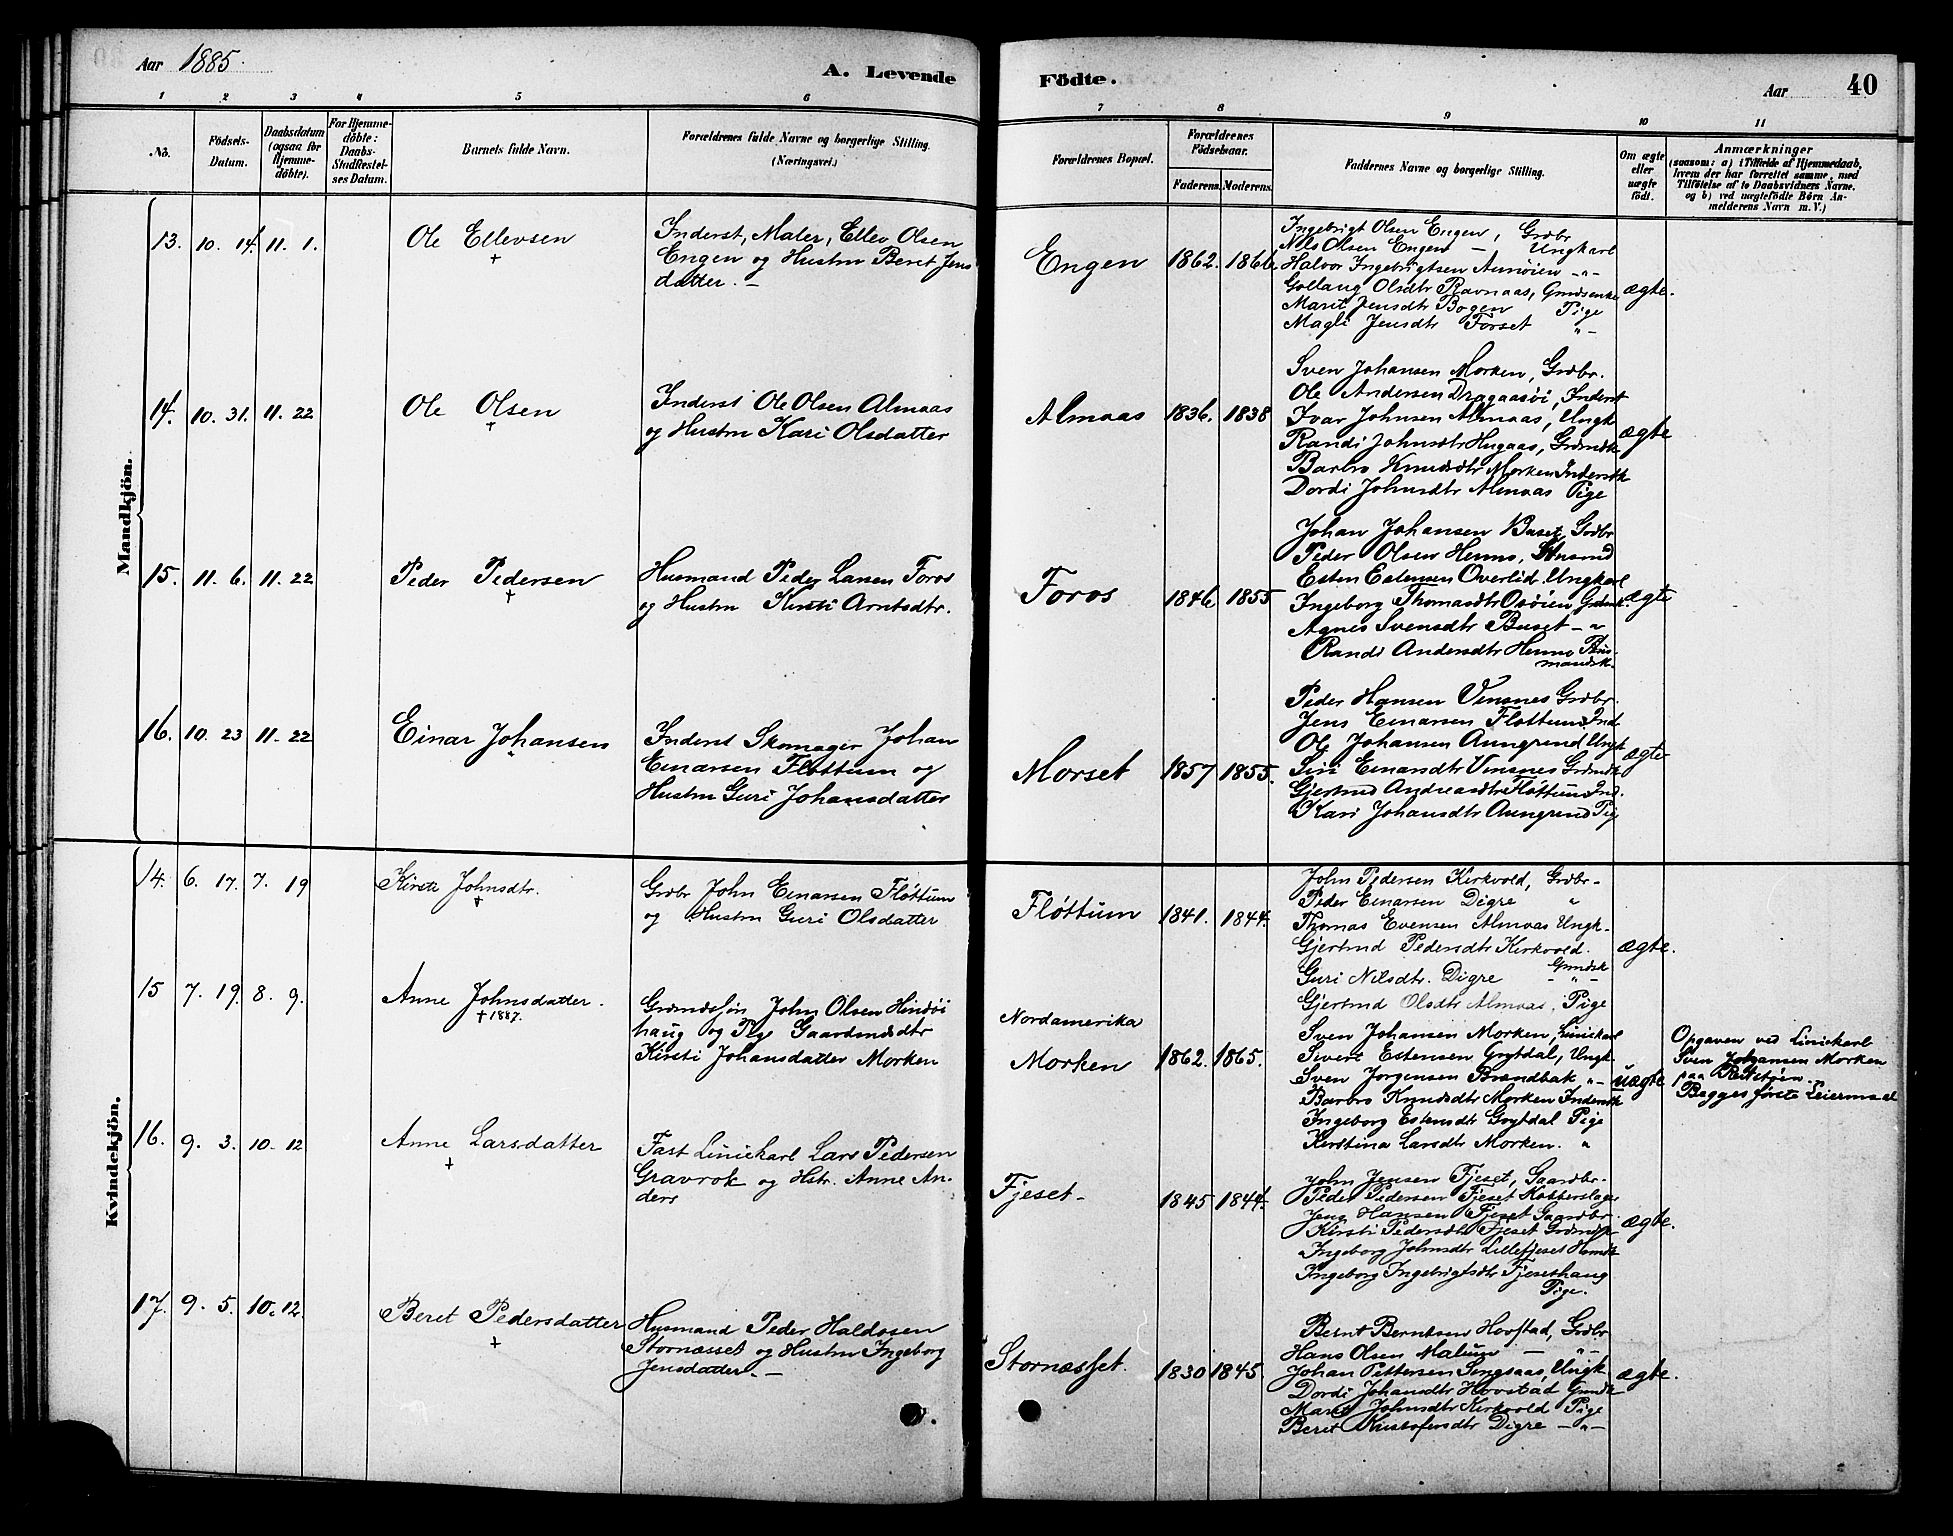 Aar 1885.
A. Levende Födte.
Aar 40
1 2 3 4 5 6 7 8 9 10 11
No.
Födsels-
Datum.
Daabsdatum
(ogsaa för
Hjemme-
döbte).
For Hjemme-
döbte:
Daabs-
Stadfestel-
ses Datum.
Barnets fulde Navn.
Forældrenes fulde Navne og borgerlige Stilling.
(Næringsvei.)
Forældrenes Bopæl.
Forældrenes
Födselsaar.
Faderens. Moderens.
Faddernes Navne og borgerlige Stilling.
Om ægte
eller
uægte
födt.
Anmærkninger
(saasom: a) i Tilfælde af Hjemmedaab,
hvem der har forrettet samme, med
Tilföielse af to Daabsvidners Navne.
og b) ved uægtefödte Börn An-
melderens Navn m. V.)
Mandkjön.
13. 10. 14. 11. 1.
Ole Ellevsen
+
Inderst, Maler, Ellev Olsen
Engen og Hustru Beret Jens
datter. –
Engen 1862. 1866.
Ingebrigt Olsen Engen, Grdbr
Nils Olsen Engen – Ungkarl
Halvor Ingebrigtsen Aunøien -"-
Gollaug Olsdtr Ravnaas,
Marit Jensdtr Bogen Pige
Magli Jensdtr Forset "-
ægte.
14. 10. 31. 11. 22
Ole Olsen
+
Inderst Ole Olsen Almaas
og Hustru Kari Olsdatter
Almaas 1836. 1838
Sven Johansen Morken, Grdbr.
Ole Andersen Dragaasøi, Inderst
Ivar Johnsen Almaas, Ungk
Randi Johnsdtr Hugaas, Grdmdk
Barbro Knudsdtr Morken Inderstk
Dordi Johnsdtr Almaas Pige
ægte
15. 11. 6. 11. 22
Peder Pedersen
+
Husmand Peder Larsen Foros
og Hustru Kirsti Arntsdtr.
Foros 1846 1855
Johan Johansen Buset, Grdbr
Peder Olsen Hermo, Husmd
Esten Estensen Overlid, Ungkarl
Ingeborg Thomasdtr Osøien Grdmk.
Agnes Svensdtr Buset – "
Randi Andersdtr Hermo Hus-
mandsk.
ægte
16. 10. 23 11. 22
Einar Johansen
"
Inderst Skomager Johan
Einarsen Fløttum og
Hustru Guri Johansdatter
Morset 1857 1855.
Peder Hansen Vinsnes Grdbr.
Jens Einarsen Fløttum Ind
Ole Johansen Aungrind Ungk
Siri Einarsdtr Vinsnes Grdmdk
Gjertrud Andreasdtr Fløttum Ind.
Kari Johansdtr Aungrind Pig
ægte
Kvindekjön.
14. 6. 17. 7. 19
Kirsti Johnsdtr.
+
Grdbr John Einarsen Fløttum
og Hustru Guri Olsdatter
Fløttum 1841. 1844.
John Pedersen Kirkvold, Grdbr-
Peder Einarsen Digre "
Thomas Evensen Almaas Ungk-
Gjertrud Pedersdtr Kirkvold.
Grmdsk
Guri Nilsdtr. Digre – " –
Gjertrud Olsdtr Almaas, Pige
ægte.
15 7. 19. 8. 9.
Anne Johnsdatter.
+ 1887.
Grdmandssøn John Olsen Hindøi
haug og Pige Gaardmdsdtr
Kirsti Johansdatter Morken
Nordamerika
Morken 1862. 1865.
Sven Johansen Morken, Liniekarl
Sivert Estensen Grytdal, Ungk.
Sven Jorgensen Brændbak "-
Barbro Knudsdtr Morken Inderstk
Ingeborg Estensdtr Grytdal Pige
Kerstina Larsdtr Morken. "
uægte
Opgaven ved Liniekarl
Sven Johansen Morken
paa
Begges første Leiermaal
16. 9. 3. 10. 12
Anne Larsdatter
+
Fast Liniekarl Lars Pedersen
Gravrok og Hstr. Anne An-
ders
Fjeset- 1845 1844.
John Jensen Fjeset, Gaardbr.
Peder Pedersen Fjeset Kobberslager
Jens Hansen Fjeset Gaardbr.
Kirsti Pedersdtr Fjeset
Ingeborg Johnsdtr Lillefjeset
Ingeborg Ingebrigtsdtr Fjesethaug
Pige.
ægte.
17. 9. 5. 10. 12.
Beret Pedersdatter
+
Husmand Peder Haldosen
Stornæsset og Hustru Ingeborg
Jensdatter. –
Stornæsset. 1830 1845.
Bernt Berntsen Hovstad, Grdbr
Hans Olsen Malum – "-
Johan Pettersen Singsaas, Ungk
Dordi Johansdtr Hovstad Grmdk
Marit Johnsdtr Kirkvold Pige
Beret Kristofersdtr Digre –"–
ægte.